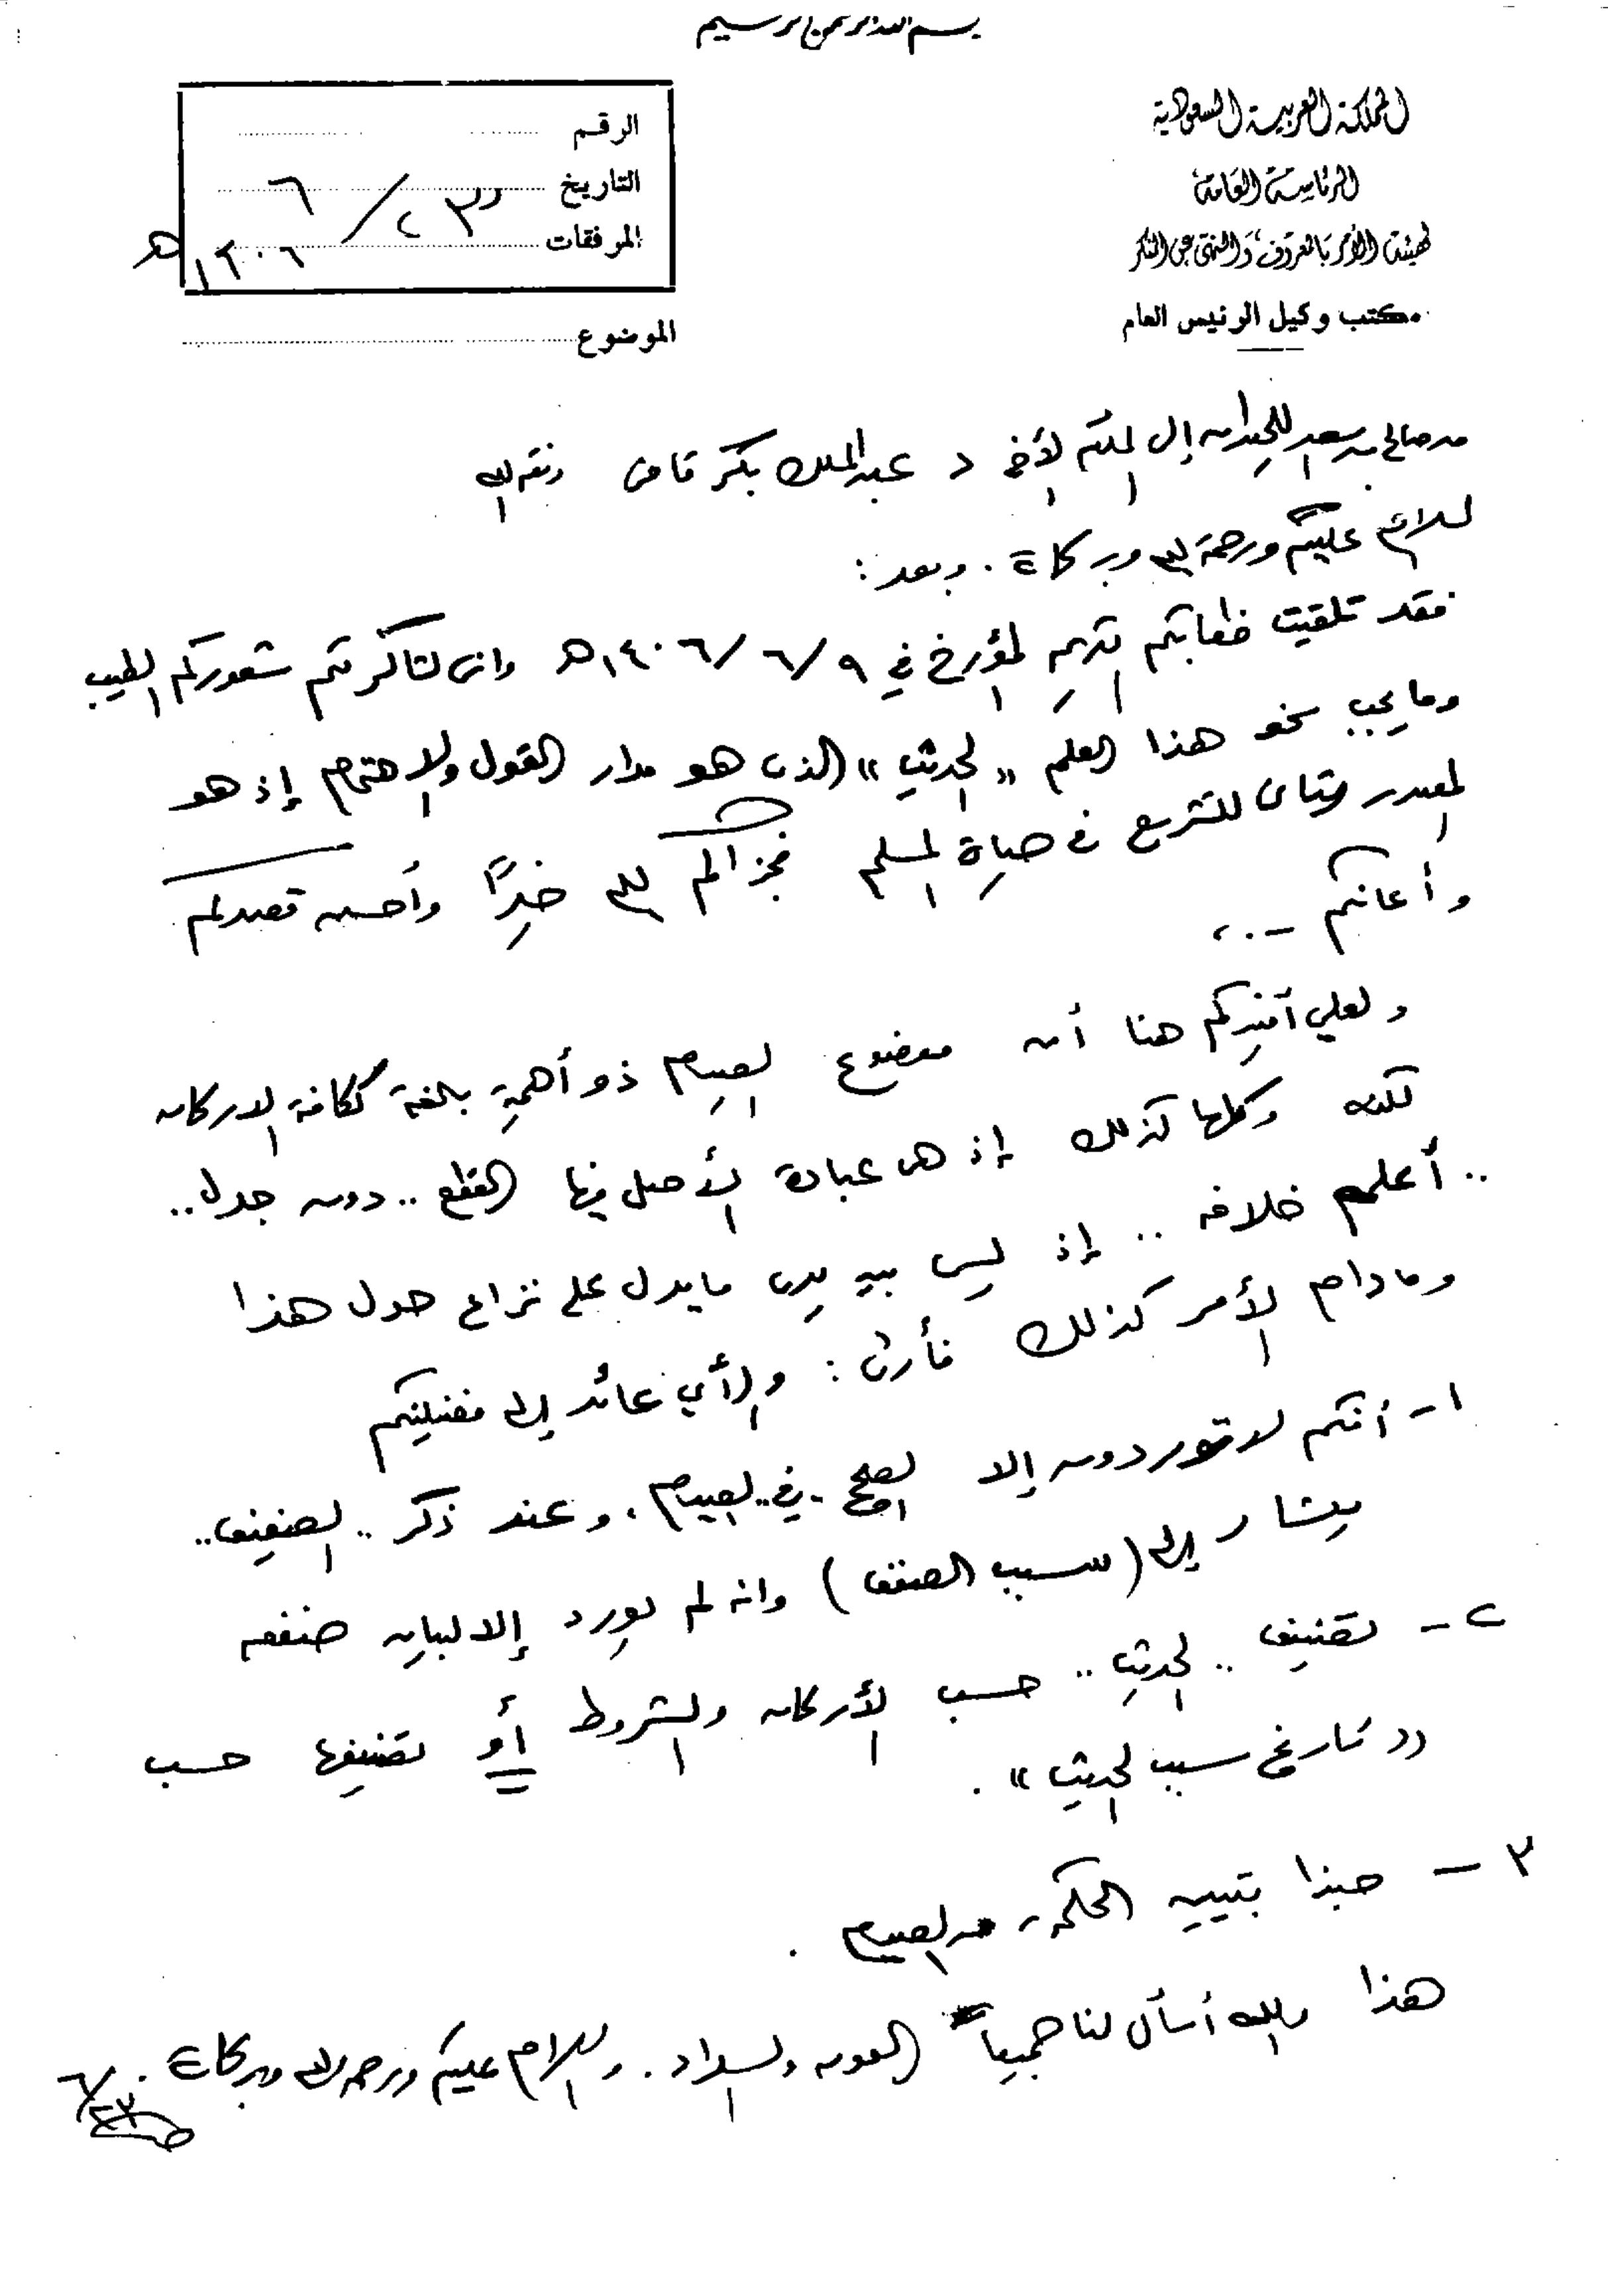 بسم الله الرحمن الرحيم
المملكة العربية السعودية
الرئاسة العامة
لهيئة الأمر بالمعروف والنهي عن المنكر
مكتب وكيل الرئيس العام
الرقم
التاريخ ٢٣ / ٦
المرفقات ١٤٠٦ هـ
الموضوع
من صالح بن سعد اللحيدان إلى المكرم الأخ د عبد الملك بكر قاضي وفقه الله
السلام عليكم ورحمة الله وبركاته . وبعد :
فقد تلقيت خطابكم الكريم المؤرخ في ٩ / ٦ / ١٤٠٦ هـ واني لشاكر لكم شعوركم الطيب
وما يجب نحو هذا العلم " الحديث " الذي هو مدار القول والاهتمام إذ هو
المصدر الثاني للتشريع في حياة المسلم فجزاكم الله خيرًا وأحسن قصدكم
وأعانكم
ولعلي أفيدكم هنا أن موضوع الصيام ذو أهمية بالغة ككافة الاركان
لكنه وكلها كذلك إذ هي عبادة الأصل فيها القطع .. دون جدل ..
.. أعلم خلافه .. إذ ليس بين يدي ما يدل على نزاع حول هذا
وما دام الأمر كذلك فأرى : والرأي عائد إلى فضيلتكم
١ - أنكم لا توردون إلا الصحيح .. في .. الصيام ، وعند ذكر .. الضعيف ..
يشار إلى ( سبب الضعف ) وانه لم يورد إلا لبيان ضعفه
٢ - تصنيف .. الحديث .. حسب الأركان والشروط أو تصنيفها حسب
" تاريخ سبب الحديث " .
٣ - حبذا تبيين الحكمة من الصيام .
هذا والله أسأل لنا جميعاً العون والسداد . والسلام عليكم ورحمة الله وبركاته .
٢٣/٦